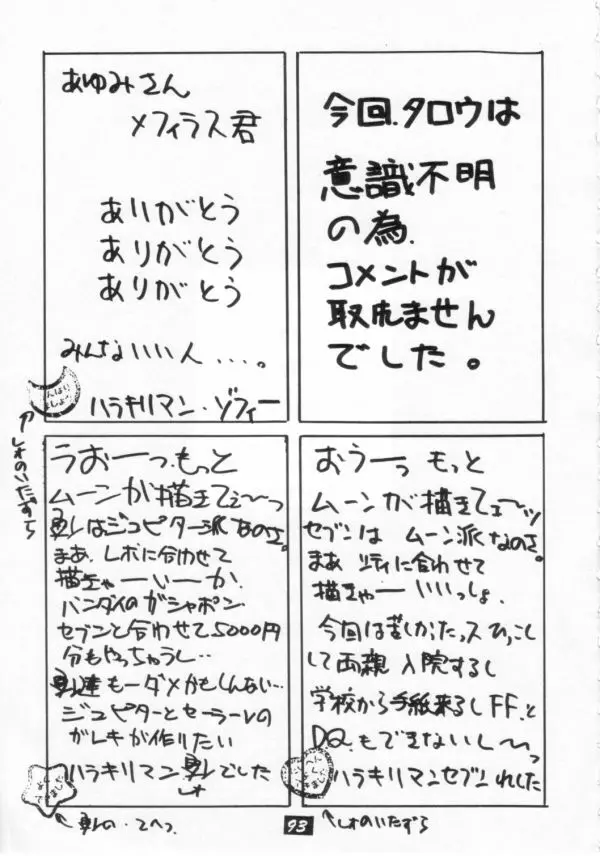 あゆみさん
メフィラス君
ありがとう
ありがとう
ありがとう
みんないい人・・・。
ハラキリマン・ゾフィー
今回、タロウは
意識不明
の為、
コメントが
取れません
でした。
うおーっ、もっと
ムーンが描きてェ〜っ
はジュピター派なのさ。
まあ、レボに合わせて
描きゃーいーか、
バンダイのガシャポン
セブンと合わせて5000円
分もやっちゃうし…
達もーダメかもしんない…
ジュピターとセーラーVの
ガレキが作りたい
ハラキリマン でした
おうーっ もっと
ムーンが描きてェ〜ッ
セブンは ムーン派なのさ。
まあ に合わせて
描きゃー いいっしょ、
今回は苦しかったっス ひっこし
して両親 入院するし
学校から手紙来るしFF、と
DQ、もできないし〜っ
ハラキリマンセブンれした
しょのいたずら
93
しょのいたずら